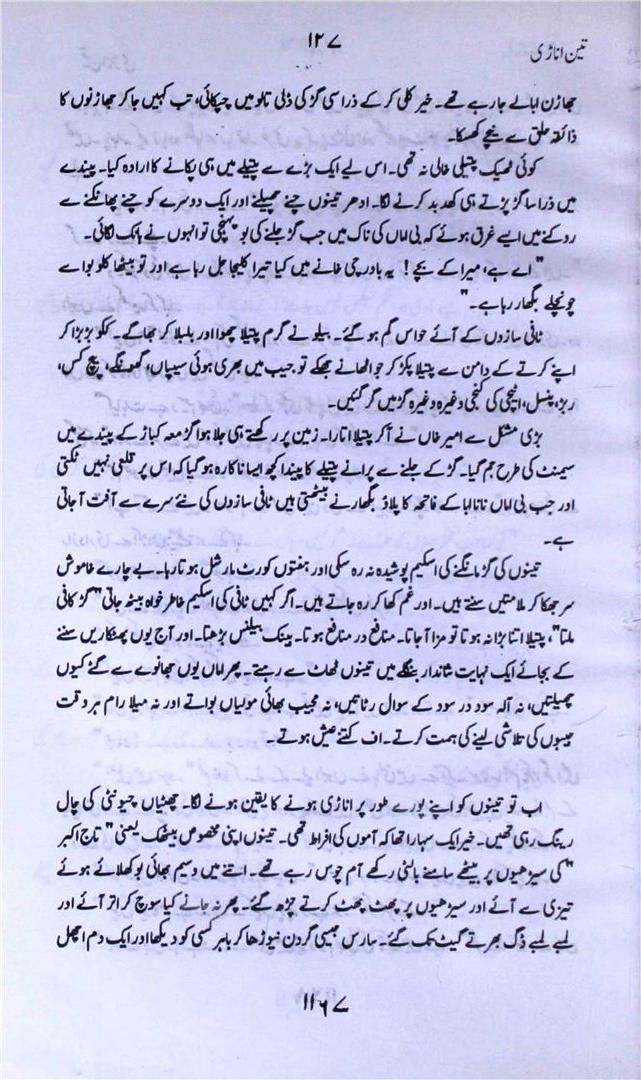 تین اناڑی
۱۲۷
جھاڑن ابالے جا رہے تھے۔ خیر کلی کر کے ذرا سی گڑ کی ڈلی تالو میں چپکائی، تب کہیں جا کر جھاڑنوں کا
ذائقہ حلق سے نیچے کھسکا۔
کوئی ٹھیک پتیلی خالی نہ تھی۔ اس لیے ایک بڑے سے پتیلے میں ہی پکانے کا ارادہ کیا۔ پیندے
میں ذرا سا گڑ پڑتے ہی کھد بد کرنے لگا۔ ادھر تینوں چنے چھیلنے اور ایک دوسرے کو چنے پھانکنے سے
روکنے میں ایسے غرق ہوئے کہ بی اماں کی ناک میں جب گڑ جلنے کی بو پہنچی تو انہوں نے ہانک لگائی۔
"اے ہے، میرا کے بچے! یہ باورچی خانے میں کیا تیرا کلیجا جل رہا ہے اور تو بیٹھا کلو بوا سے
چونچلے بگھار رہا ہے۔"
ٹافی سازوں کے آئے حواس گم ہو گئے۔ ببلو نے گرم پتیلا چھوا اور بلبلا کر بھاگے۔ ککو ہڑبڑا کر
اپنے کرتے کے دامن سے پتیلا پکڑ کر جو اٹھانے جھکے تو جیب میں بھری ہوئی سیپیاں، گھونگے، پیچ کس،
ربڑ، پنسل، اٹیچی کی کنجی وغیرہ وغیرہ گڑ میں گر گئیں۔
بڑی مشکل سے امیر خاں نے آکر پتیلا اتارا۔ زمین پر رکھتے ہی جلا ہوا گڑ معہ کباڑ کے پیندے میں
سیمنٹ کی طرح جم گیا۔ گڑ کے جلنے سے پرانے پتیلے کا پیندا کچھ ایسا ناکارہ ہو گیا کہ اس پر قلعی نہیں ٹکتی
اور جب بی اماں نانا ابا کے فاتحہ کا پلاؤ بگھارنے بیٹھتی ہیں ٹافی سازوں کی نئے سرے سے آفت آ جاتی
ہے۔
تینوں کی گڑ مانگنے کی اسکیم پوشیدہ نہ رہ سکی اور ہفتوں کورٹ مارشل ہوتا رہا۔ بے چارے خاموش
سر جھکا کر ملامتیں سنتے ہیں۔ اور غم کھا کر رہ جاتے ہیں۔ اگر کہیں ٹافی کی اسکیم خاطر خواہ بیٹھ جاتی "گڑ کافی
ملتا"، پتیلا اتنا بڑا نہ ہوتا تو مزا آ جاتا۔ منافع در منافع ہوتا۔ بینک بیلنس بڑھتا۔ اور آج یوں پھنکاریں سننے
کے بجائے ایک نہایت شاندار بنگلے میں تینوں ٹھاٹ سے رہتے۔ پھر اماں یوں سجانوے سے گئے کیوں
چھیلتیں، نہ آلہ سود در سود کے سوال رٹاتیں، نہ مجیب بھائی مولیاں بواتے اور نہ میلا رام ہر وقت
جیبوں کی تلاشی لینے کی ہمت کرتے۔ اف کتنے عیش ہوتے۔
اب تو تینوں کو اپنے پورے طور پر اناڑی ہونے کا یقین ہونے لگا۔ چھٹیاں چیونٹی کی چال
رینگ رہی تھیں۔ خیر ایک سہارا تھا کہ آموں کی افراط تھی۔ تینوں اپنی مخصوص بیٹھک یعنی "تاج اکبر
" کی سیڑھیوں پر بیٹھے سامنے بالٹی رکھے آم چوس رہے تھے۔ اتنے میں وسیم بھائی بوکھلائے ہوئے
تیزی سے آئے اور سیڑھیوں پر پھٹ پھٹ کرتے چڑھ گئے۔ پھر نہ جانے کیا سوچ کر اتر آئے اور
لمبے لمبے ڈگ بھرتے گیٹ تک گئے۔ سارس جیسی گردن نیوڑھا کر باہر کسی کو دیکھا اور ایک دم اچھل
۱۱۶۷